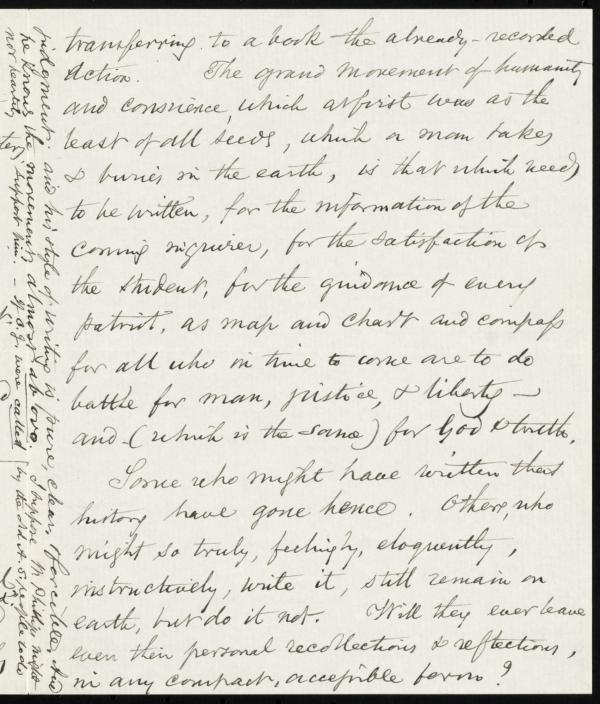 transferring to a book the already-recorded
Action. The grand movement of humanity
and conscience, which at first was as the
least of all seeds, which a man takes
& buries in the earth, is that which needs
to be written, for the information of the
coming inquirer, for the satisfaction of
the student, for the guidance of every
patriot, as map and chart and compass
for all who in time to come are to do
battle for man, justice, & liberty —
and (which is the same) for God & truth.
Some who might have written that
history have gone hence. Others, who
might so truly, feelingly, eloquently,
instructively, write it, still remain on
earth, but do it not. Will they ever leave
even their personal recollections & reflections,
in any compact, accessible form?
judgment, and his style of writing is pure, clear, & forcible, And
he knows the movement almost ab ovo. I suppose Mr. Phillips might
support him. — If O. J. were called by the